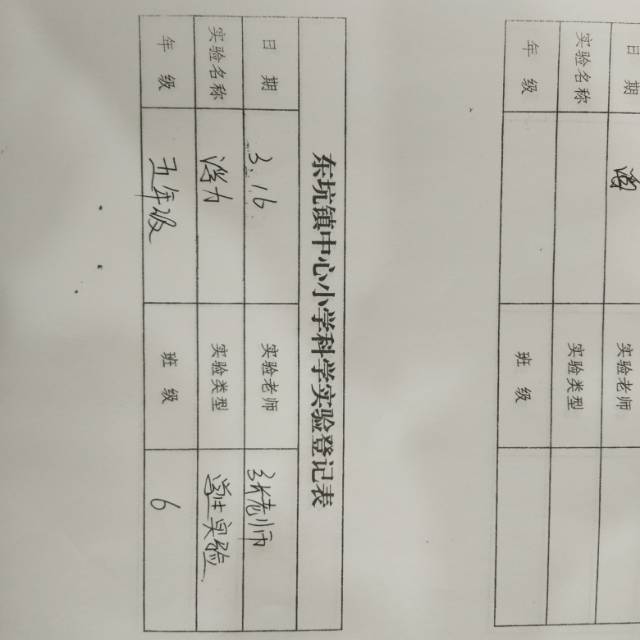 东坑镇中心小学科学实验登记表
日 期 3.16 实验老师 张老师
实验名称 浮力 实验类型 学生实验
年 级 五年级 班 级 6
日 期 实验老师
实验名称 实验类型
年 级 班 级